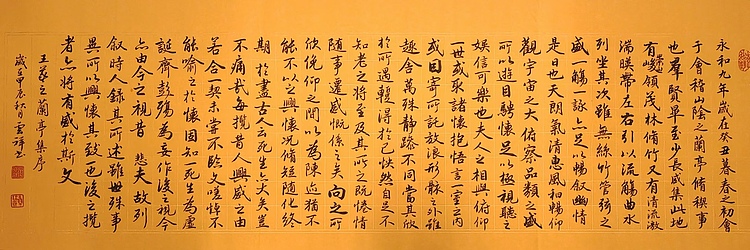 永和九年歲在癸丑暮春之初會
于會稽山陰之蘭亭脩稧事
也羣賢畢至少長咸集此地
有崇山峻領茂林脩竹又有清流激
湍暎帶左右引以流觴曲水
列坐其次雖無絲竹管弦之
盛一觴一詠亦足以暢叙幽情
是日也天朗氣清惠風和暢仰
觀宇宙之大俯察品類之盛
所以遊目騁懷足以極視聽之
娛信可樂也夫人之相與俯仰
一世或取諸懷抱悟言一室之內
或因寄所託放浪形骸之外雖
趣舍萬殊靜躁不同當其欣
於所遇蹔得於己怏然自足不
知老之將至及其所之既惓情
隨事遷感慨係之矣向之所
欣俛仰之間以為陳迹猶不
能不以之興懷況脩短隨化終
期於盡古人云死生亦大矣豈
不痛哉每攬昔人興感之由
若合一契未嘗不臨文嗟悼不
能喻之於懷固知死生為虛
誕齊彭殤為妄作後之視今
亦由今之視昔悲夫故列
敘時人錄其所述雖世殊事
異所以興懷其致一也後之攬
者亦將有感於斯文
王羲之蘭亭集序
歲在甲辰秋月雲祥书